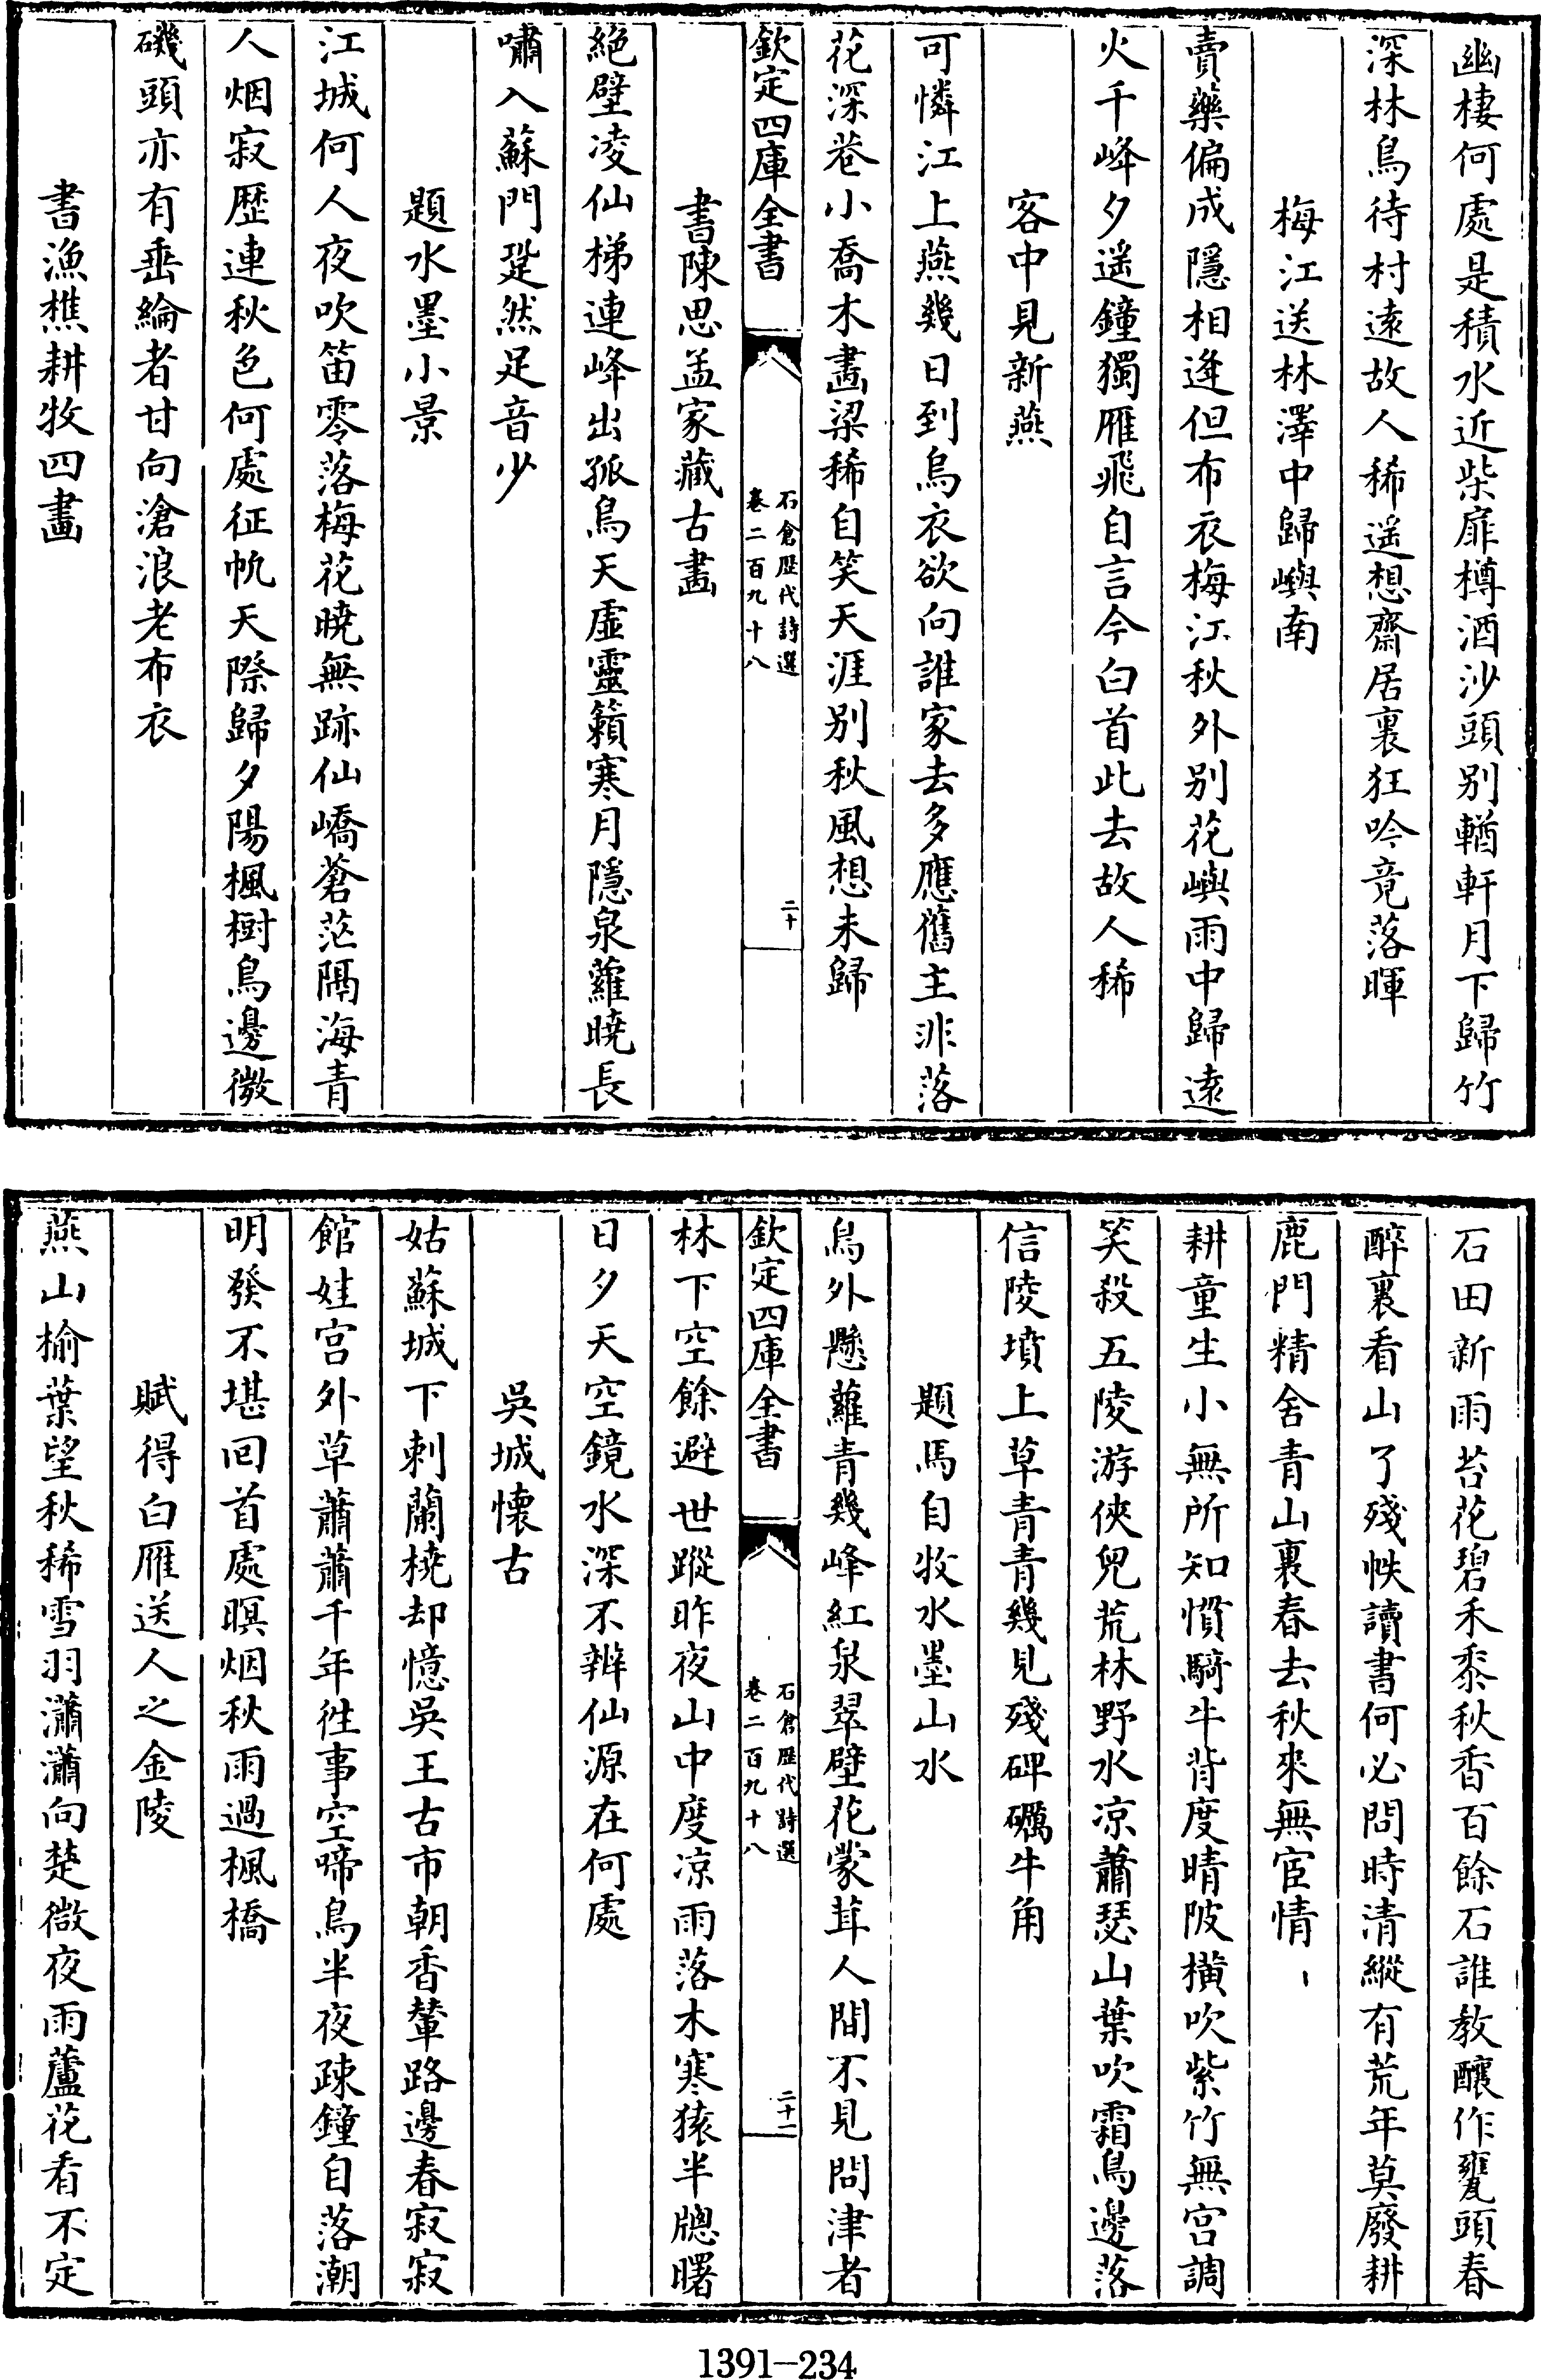 幽棲何處是積水近柴扉樽酒沙頭别輶軒月下歸竹
深林鳥待村逺故人稀遥想齋居裏狂吟竟落暉
梅江送林澤中歸嶼南
賣藥偏成隱相逢但布衣梅江秋外别花嶼雨中歸逺
火千峰夕遥鐘獨雁飛自言今白首此去故人稀
客中見新燕
可憐江上燕幾日到烏衣欲向誰家去多應舊主非落
花深巷小喬木畫梁稀自笑天涯别秋風想未歸
欽定四庫全書
石倉歴代詩選
卷二百九十八
二十
書陳思孟家藏古畫
絶壁凌仙梯連峰出孤鳥天虚靈籟寒月隱泉蘿曉長
嘯入蘇門跫然足音少
題水墨小景
江城何人夜吹笛零落梅花曉無跡仙嶠蒼茫隔海青
人烟寂歴連秋色何處征帆天際歸夕陽楓樹鳥邊微
磯頭亦有垂綸者甘向滄浪老布衣
書漁樵耕牧四畫
石田新雨苔花碧禾黍秋香百餘石誰教釀作甕頭春
醉裏看山了殘帙讀書何必問時清縱有荒年莫廢耕
鹿門精舍青山裏春去秋來無宦情
耕童生小無所知慣騎牛背度晴陂横吹紫竹無宫調
笑殺五陵游俠兒荒林野水凉蕭瑟山葉吹霜鳥邊落
信陵墳上草青青幾見殘碑礪牛角
題馬自牧水墨山水
鳥外懸蘿青幾峰紅泉翠壁花蒙茸人間不見問津者
欽定四庫全書
石倉歴代詩選
卷二百九十八
二十一
林下空餘避世蹤昨夜山中度凉雨落木寒猿半牕曙
日夕天空鏡水深不辨仙源在何處
吳城懷古
姑蘇城下刺蘭橈却憶吳王古市朝香輦路邊春寂寂
館娃宫外草蕭蕭千年徃事空啼鳥半夜疎鐘自落潮
明發不堪回首處暝烟秋雨過楓橋
賦得白雁送人之金陵
燕山榆葉望秋稀雪羽瀟瀟向楚微夜雨蘆花看不定
1391—234